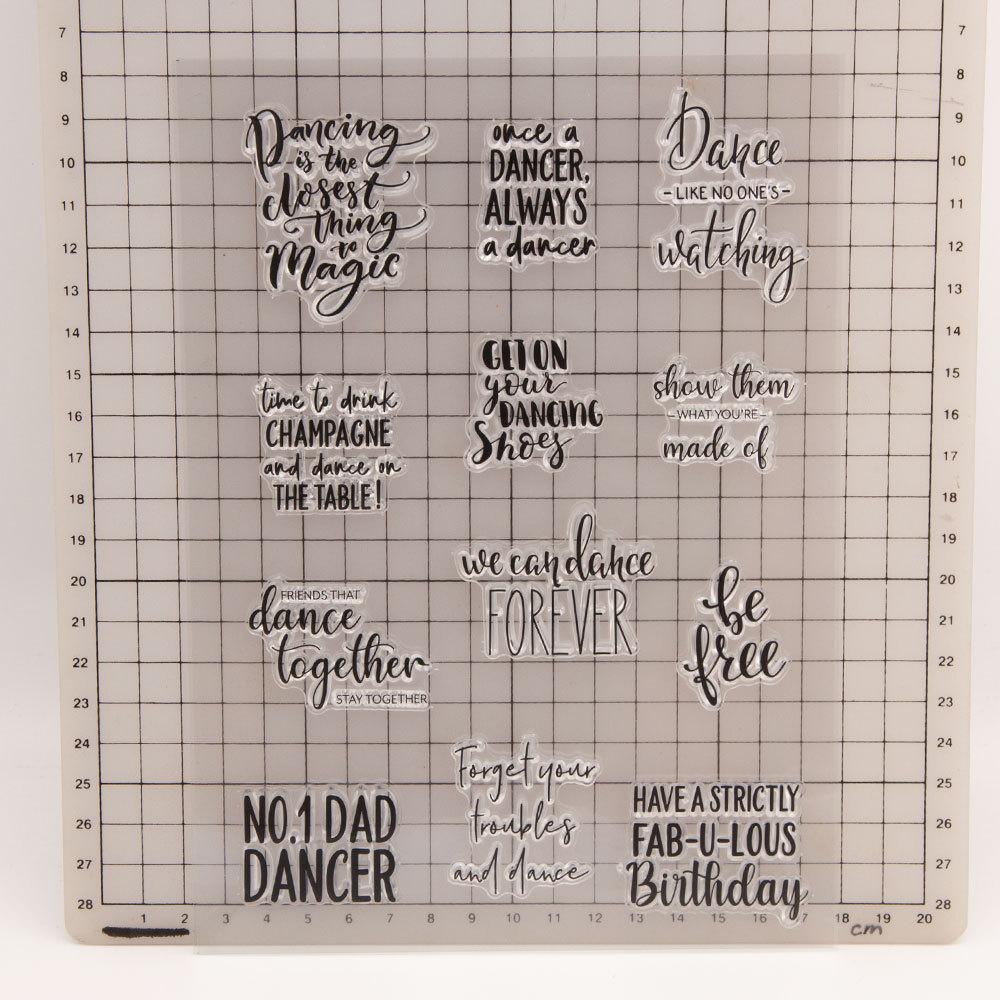 Dancing
is the
closest
thing
to
Magic
once a
DANCER,
ALWAYS
a dancer
Dance
- LIKE NO ONE'S -
watching
time to drink
CHAMPAGNE
and dance on
THE TABLE!
GET ON
your
DANCING
Shoes
show them
- WHAT YOU'RE -
made of
FRIENDS THAT
dance
together
STAY TOGETHER
we can dance
FOREVER
be
free
NO.1 DAD
DANCER
Forget your
troubles
and dance
HAVE A STRICTLY
FAB-U-LOUS
Birthday
7 7
8 8
9 9
10 10
11 11
12 12
13 13
14 14
15 15
16 16
17 17
18 18
19 19
20 20
21 21
22 22
23 23
24 24
25 25
26 26
27 27
28 28
1 2 3 4 5 6 7 8 9 10 11 12 13 14 15 16 17 18 19 20
cm